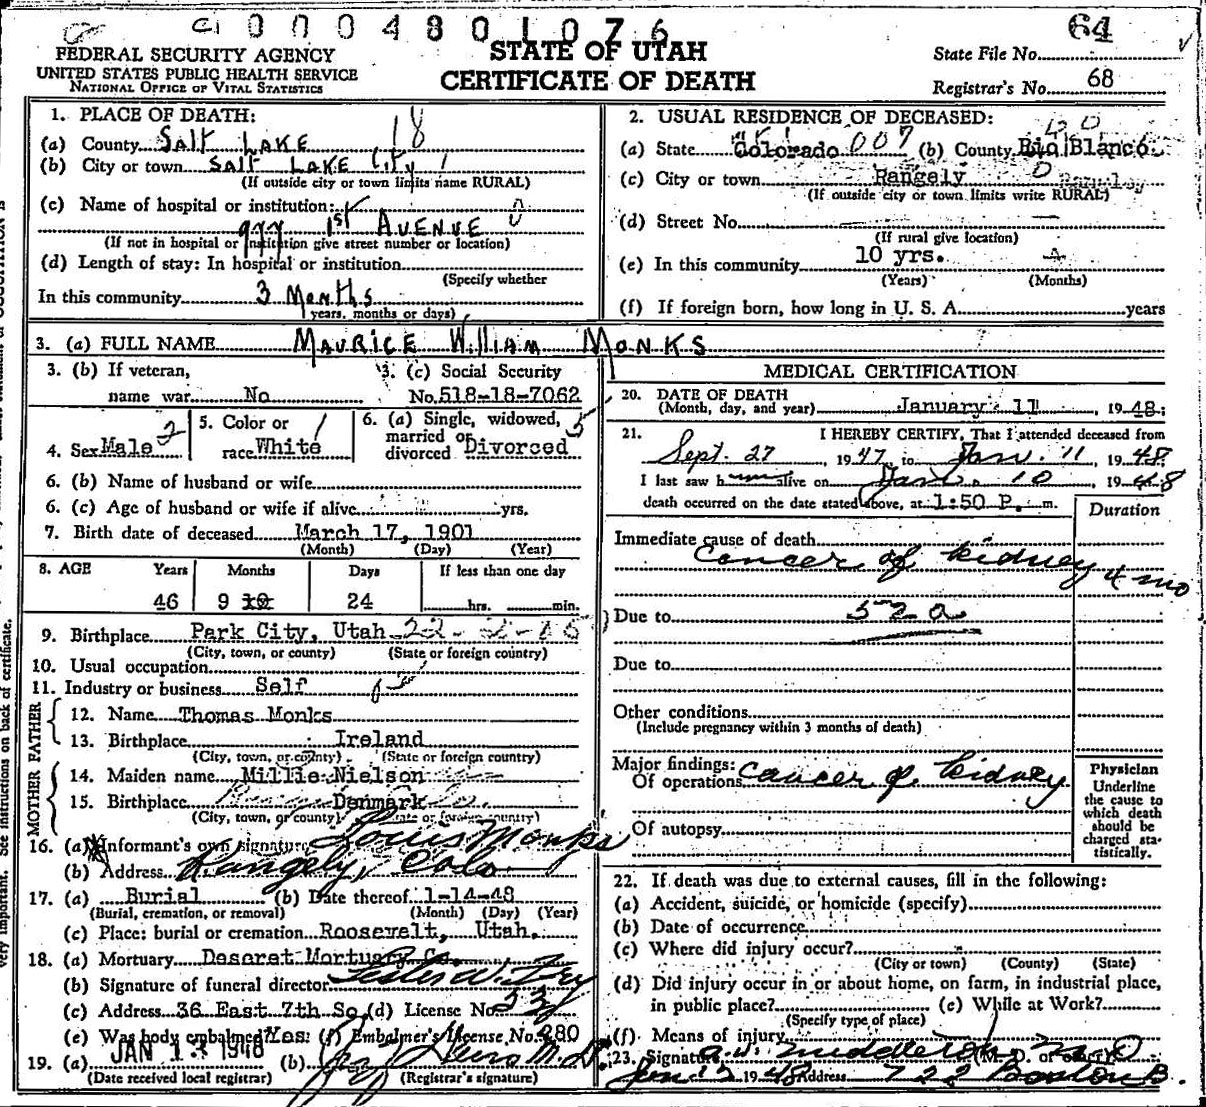 0 0 0 4 8 0 1 0 7 6
64
FEDERAL SECURITY AGENCY
UNITED STATES PUBLIC HEALTH SERVICE
NATIONAL OFFICE OF VITAL STATISTICS
STATE OF UTAH
CERTIFICATE OF DEATH
State File No.
Registrar's No. 68
1. PLACE OF DEATH: 18
(a) County SALT LAKE
(b) City or town SALT LAKE CITY
(If outside city or town limits name RURAL)
(c) Name of hospital or institution:
977 1st AVENUE
(If not in hospital or institution give street number or location)
(d) Length of stay: In hospital or institution
(Specify whether
In this community 3 Months
years, months or days)
2. USUAL RESIDENCE OF DECEASED:
(a) State Colorado 007 (b) County Rio Blanco
(c) City or town Rangely
(If outside city or town limits write RURAL)
(d) Street No. —
(If rural give location)
(e) In this community 10 yrs.
(Years) (Months)
(f) If foreign born, how long in U. S. A. years
3. (a) FULL NAME MAURICE WILLIAM MONKS
3. (b) If veteran,
name war No
3. (c) Social Security
No. 518-18-7062
4. Sex Male 2
5. Color or
race White
6. (a) Single, widowed,
married or
divorced Divorced 5
6. (b) Name of husband or wife
6. (c) Age of husband or wife if alive yrs.
7. Birth date of deceased March 17, 1901
(Month) (Day) (Year)
8. AGE Years Months Days If less than one day
46 9 10 24 hrs. min.
9. Birthplace Park City, Utah
(City, town, or county) (State or foreign country)
10. Usual occupation
11. Industry or business Self
FATHER
12. Name Thomas Monks
13. Birthplace Ireland
(City, town, or county) (State or foreign country)
MOTHER
14. Maiden name Millie Nielson
15. Birthplace Denmark
(City, town, or county) (State or foreign country)
16. (a) Informant's own signature Louis Monks
(b) Address Rangely, Colo
17. (a) Burial (b) Date thereof 1-14-48
(Burial, cremation, or removal) (Month) (Day) (Year)
(c) Place: burial or cremation Roosevelt, Utah.
18. (a) Mortuary Deseret Mortuary Co.
(b) Signature of funeral director Lester W. Fry
(c) Address 36 East 7th So. (d) License No.
(e) Was body embalmed? Yes: (f) Embalmer's License No. 980
19. (a) JAN 13 1948 (b)
(Date received local registrar) (Registrar's signature)
MEDICAL CERTIFICATION
20. DATE OF DEATH
(Month, day, and year) January 11, 1948;
21. I HEREBY CERTIFY, That I attended deceased from
Sept. 27, 1947, to Jan. 11, 1948
I last saw him alive on Jan. 10, 1948
death occurred on the date stated above, at 1:50 P. m.
Duration
Immediate cause of death
cancer of kidney 4 mo
Due to 520
Due to
Other conditions
(Include pregnancy within 3 months of death)
Major findings:
Of operations cancer of kidney
Of autopsy
Physician
Underline
the cause to
which death
should be
charged sta-
tistically.
22. If death was due to external causes, fill in the following:
(a) Accident, suicide, or homicide (specify)
(b) Date of occurrence
(c) Where did injury occur?
(City or town) (County) (State)
(d) Did injury occur in or about home, on farm, in industrial place,
in public place? (e) While at Work?
(Specify type of place)
(f) Means of injury
23. Signature A.W. Middleton M.D.
1948 Address 722 Boston B.
very important. See instructions on back of certificate.